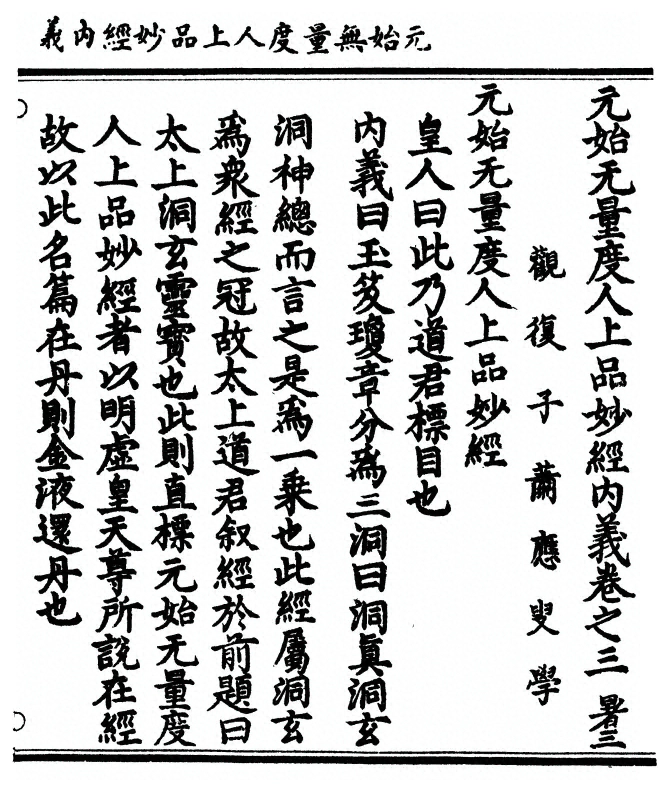 元始無量度人上品妙經內義
元始无量度人上品妙經内義卷之三 暑三
觀復子蕭應叟學
元始无量度人上品妙經
皇人曰此乃道君標目也
内義曰玉笈瓊章分爲三洞曰洞眞洞玄
洞神總而言之是爲一乗也此經屬洞玄
爲衆經之冠故太上道君叙經於前題曰
太上洞玄靈寳也此則直標元始无量度
人上品妙經者以明虛皇天尊所說在經
故以此名篇在丹則金液還丹也